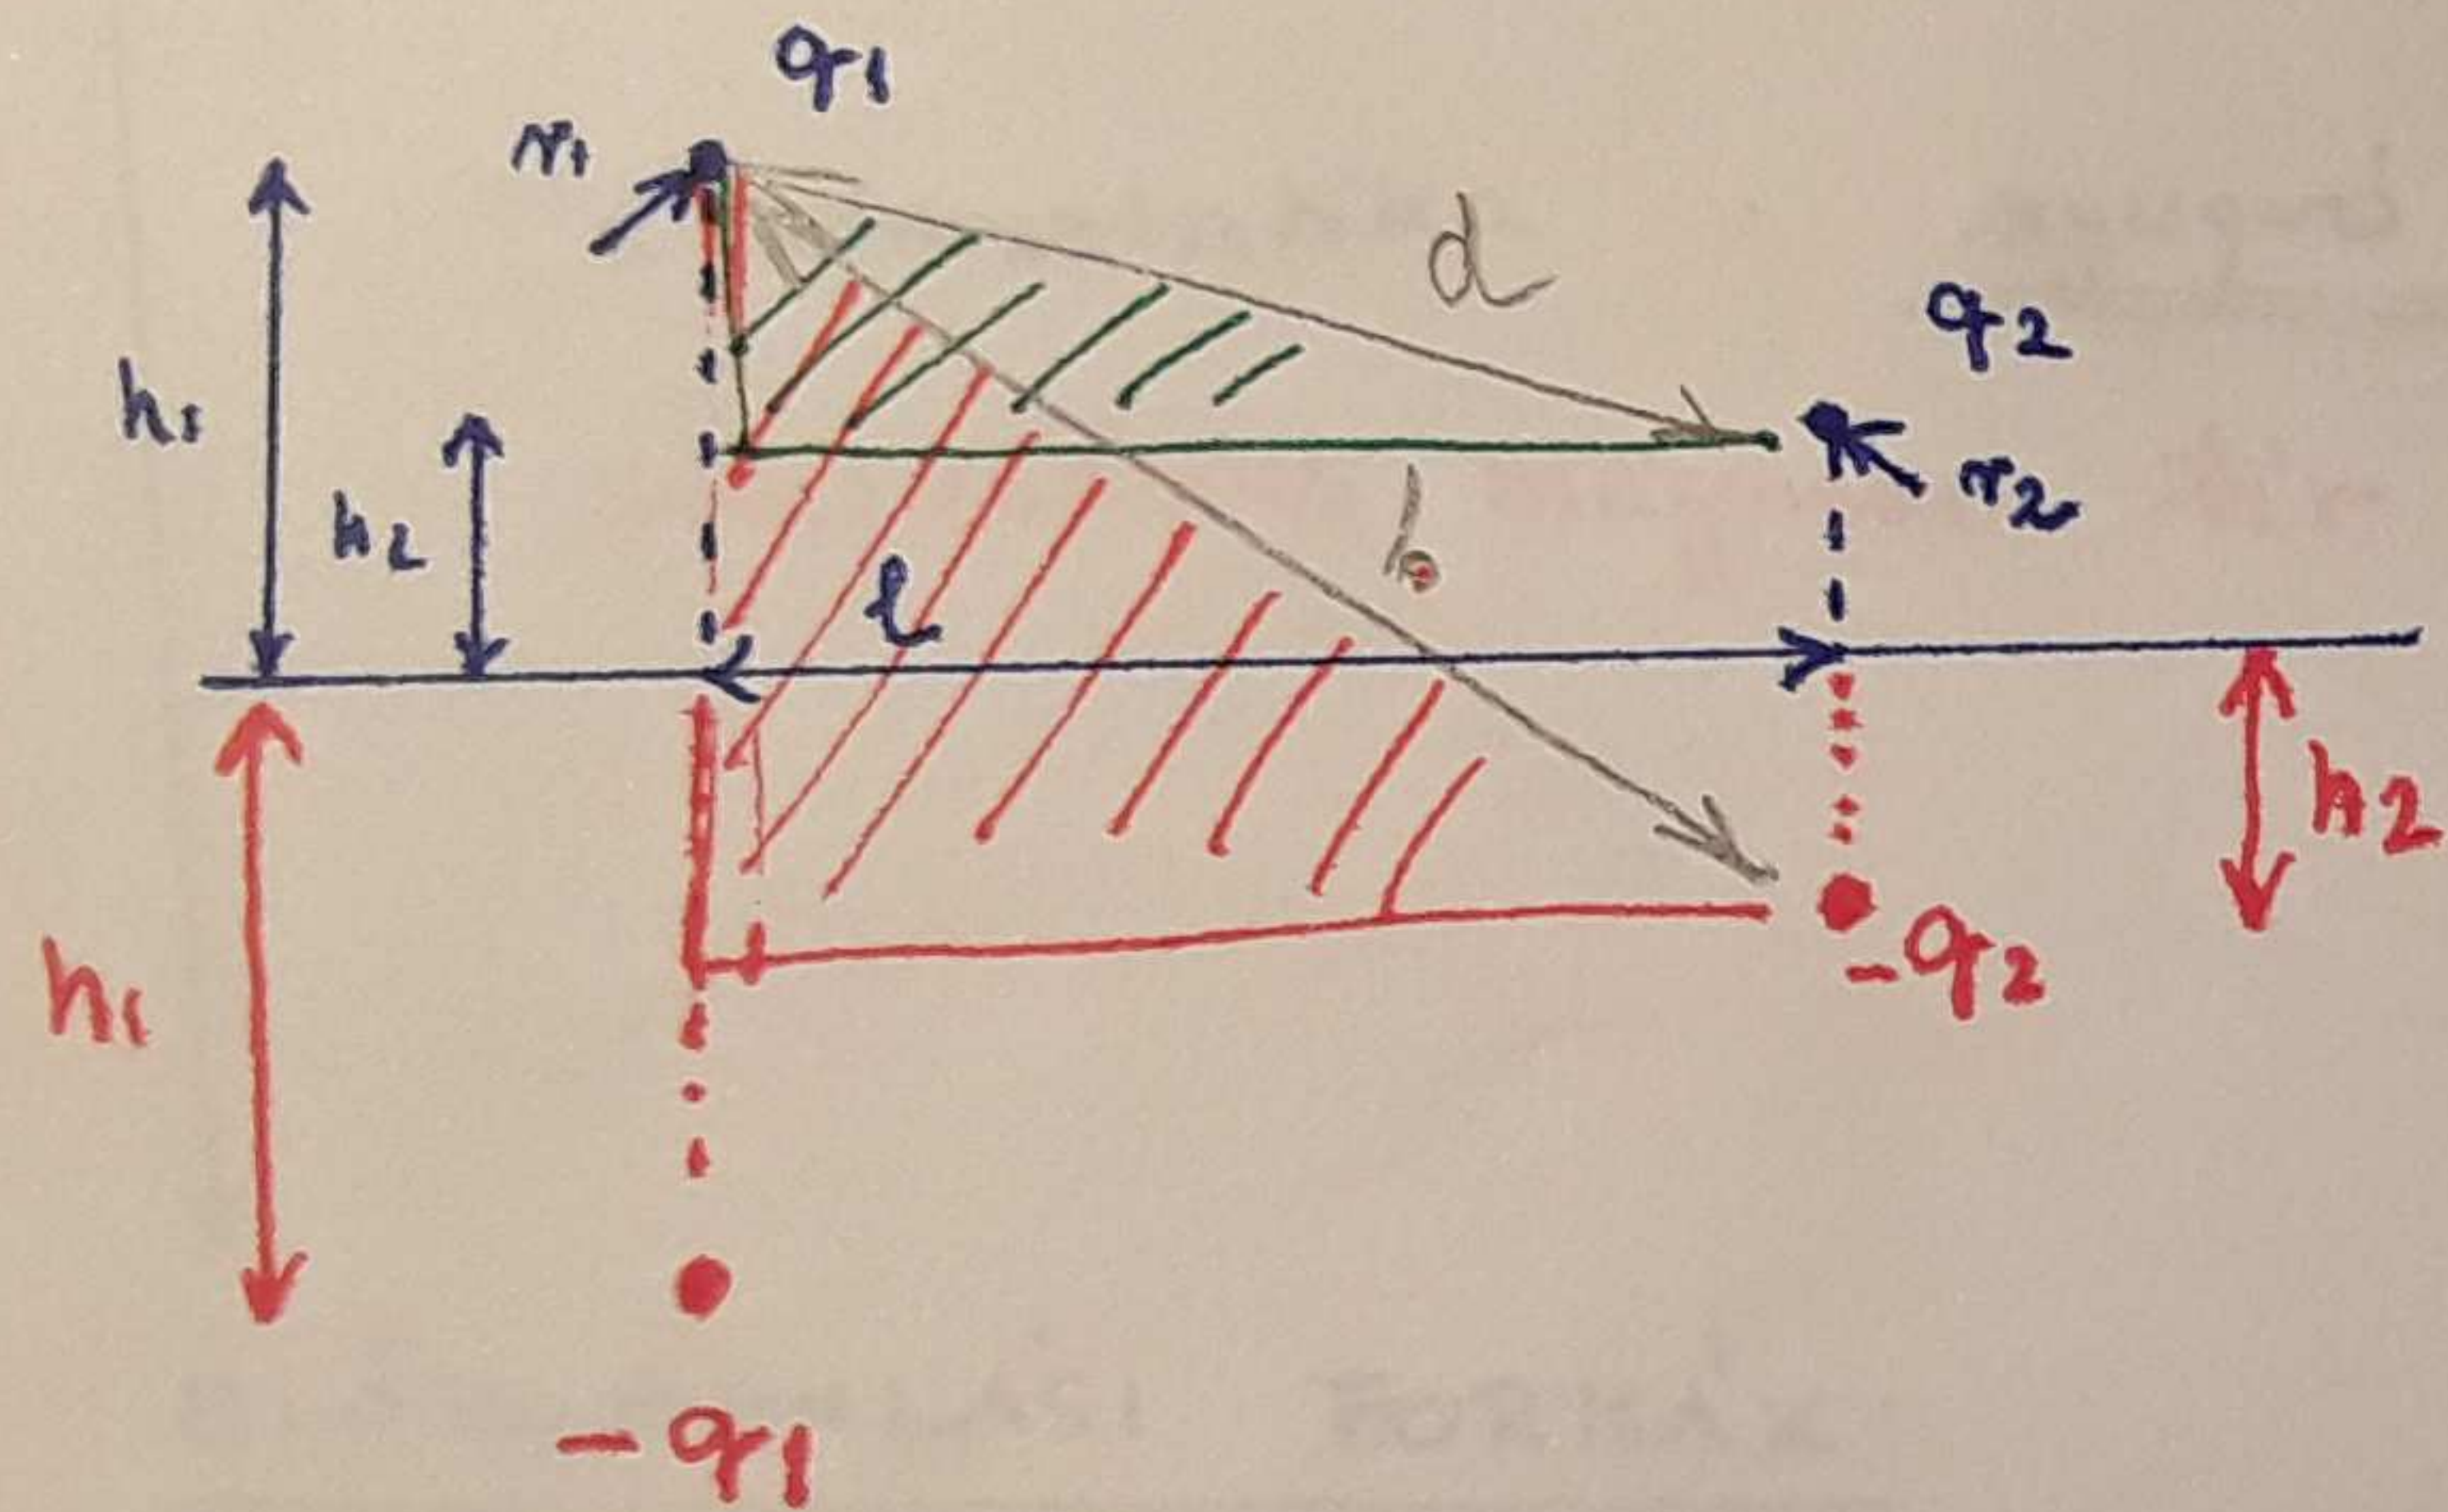 q1
r1
d
q2
h1
r2
h2
b
l
h2
-q2
h1
-q1